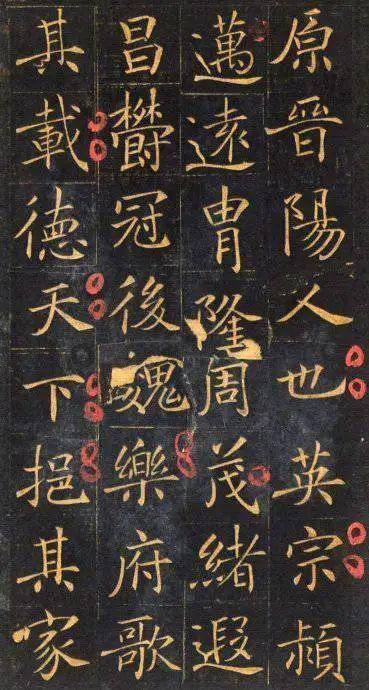 原晉陽人也英宗頴
邁遠胄隆周茂緒遐
昌欝冠後魏樂府歌
其載德天下挹其家